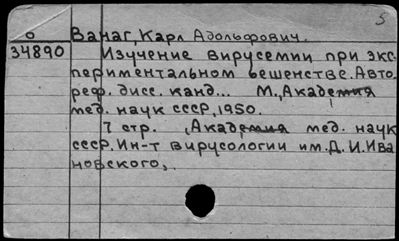 5
о Ванаг, Карл Адольфович.
34890 Изучение вирусемии при экс-
периментальном бешенстве. Авто-
реф. дисс. канд... М., Академия
мед. наук СССР, 1950.
7 стр. , Академия мед. наук
СССР. Ин-т вирусологии им. Д. И. Ива
новского,.